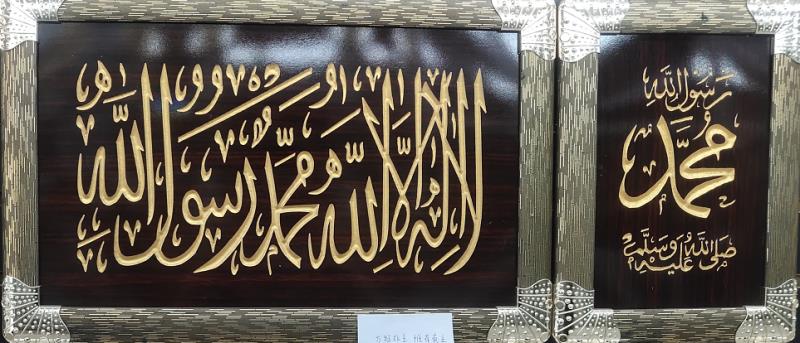 لا إله إلا الله محمد رسول الله
رَسُولُ اللهِ
مُحَمَّد
صَلَّى اللهُ عَلَيْهِ وَسَلَّمَ
万物非主 惟有真主